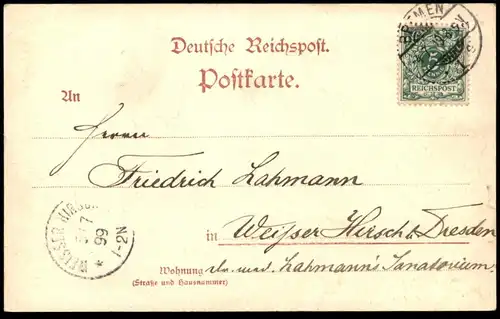 BREMEN
Deutsche Reichspost.
Postkarte.
REICHSPOST
An
Herrn
Friedrich Lahmann
WEISSER HIRSCH
7
99
1-2N
in Weißer Hirsch b. Dresden
Wohnung dr. med. Lahmann's Sanatorium.
(Straße und Hausnummer)